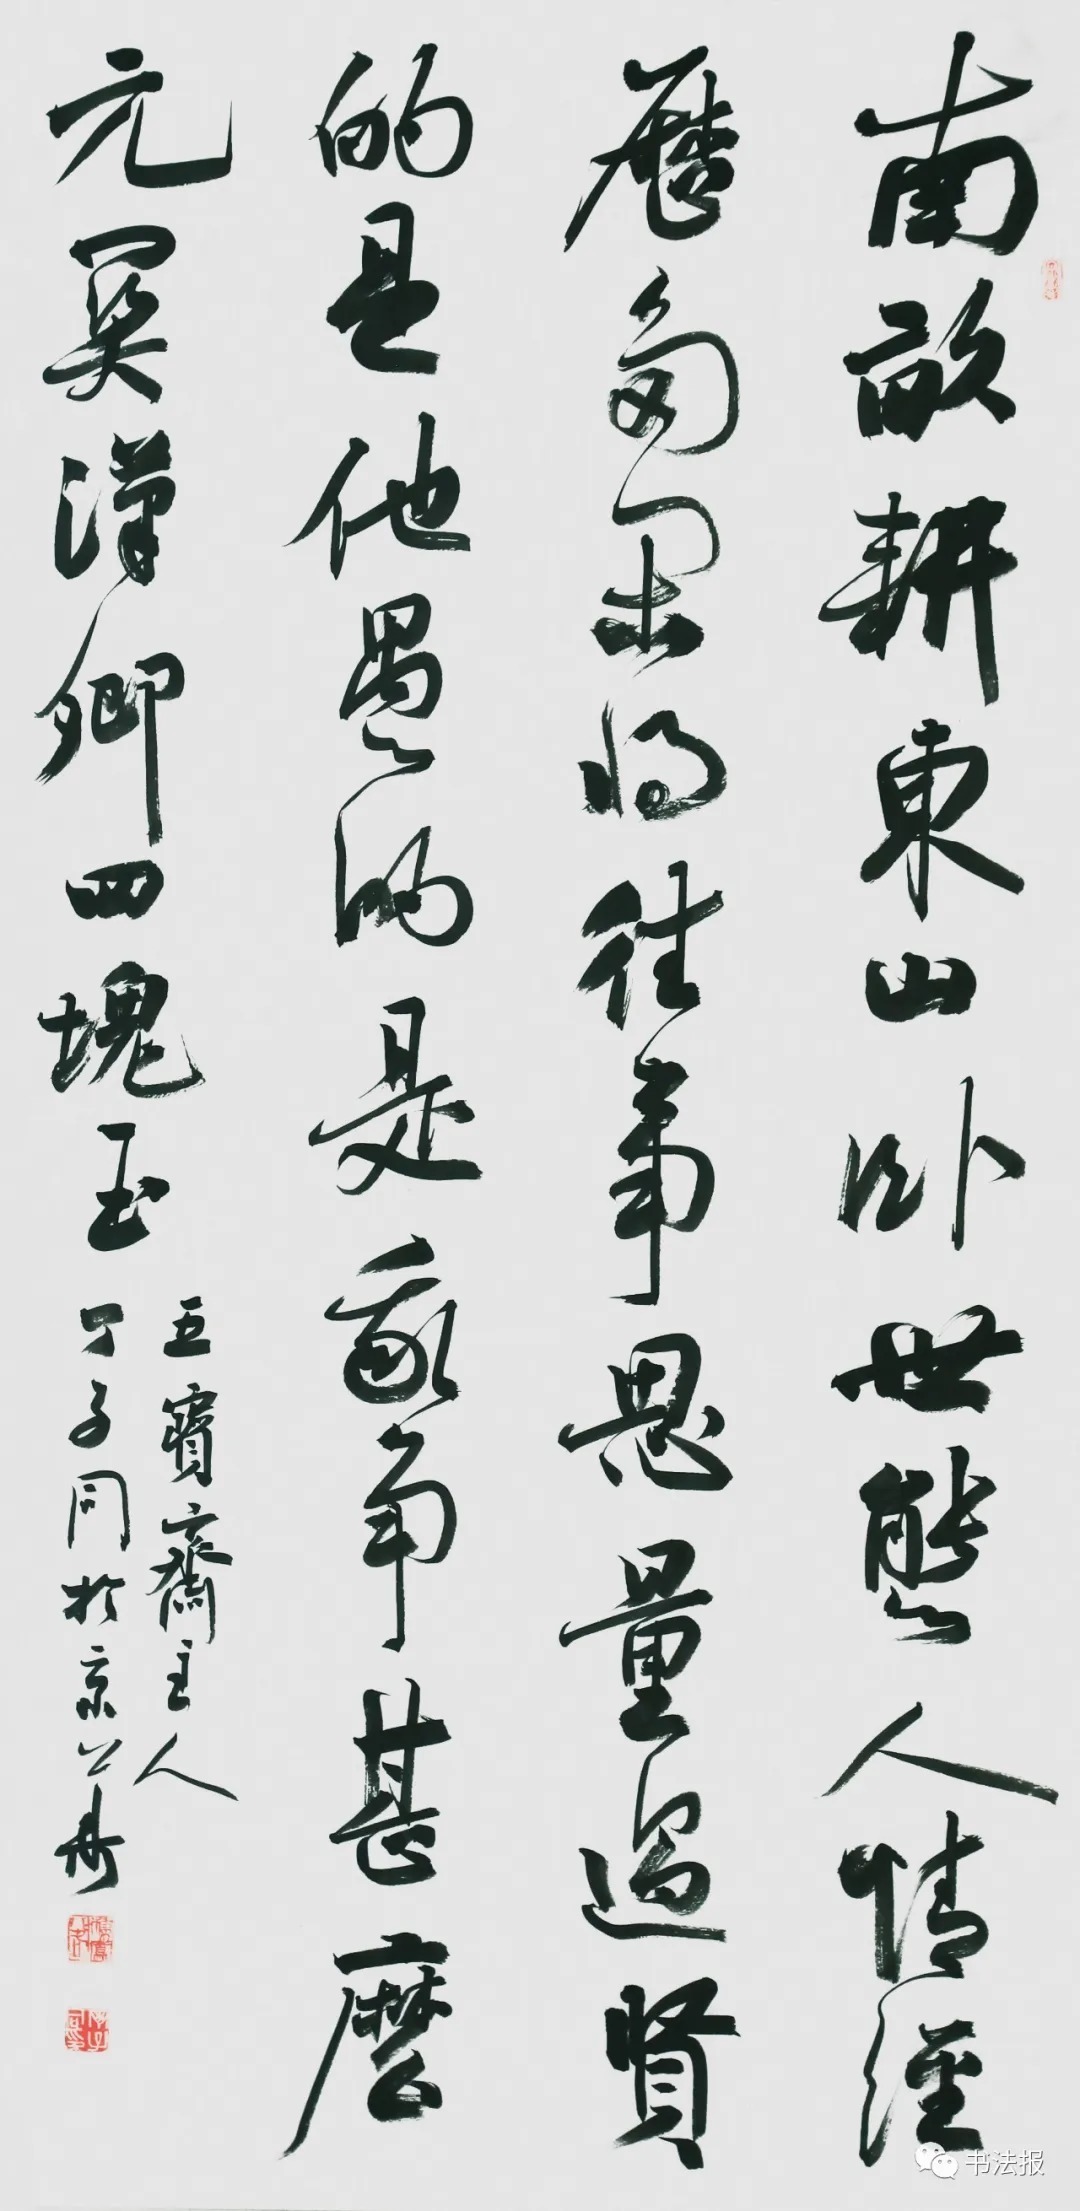 南畝耕東山卧世態人情經
歷多閑將往事思量過賢
的是他愚的是我爭甚麼
元關漢卿四塊玉
五寶齋主人
子同於京華
书法报